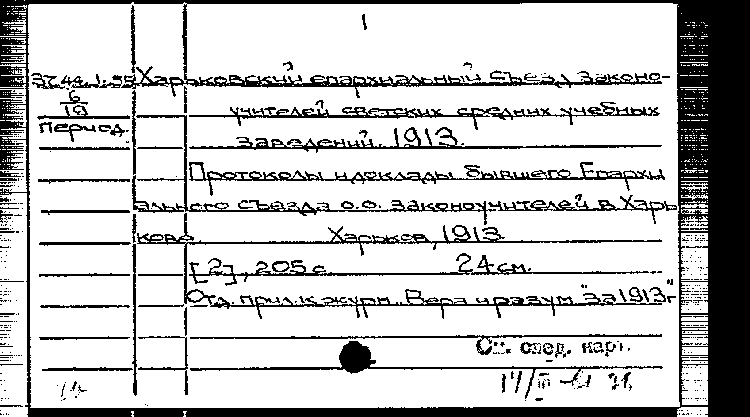 1
37.44.1.55 Харьковский епархиальный съезд законо-
6/18 учителей светских средних учебных
период. заведений. 1913.
Протоколы и доклады бывшего Епархи
ального съезда о.о. законоучителей в Харь
кове. Харьков, 1913
[2], 205 с. 24 см.
Отд. прил. к журн. "Вера и разум" за 1913 г.
См. след. карт.